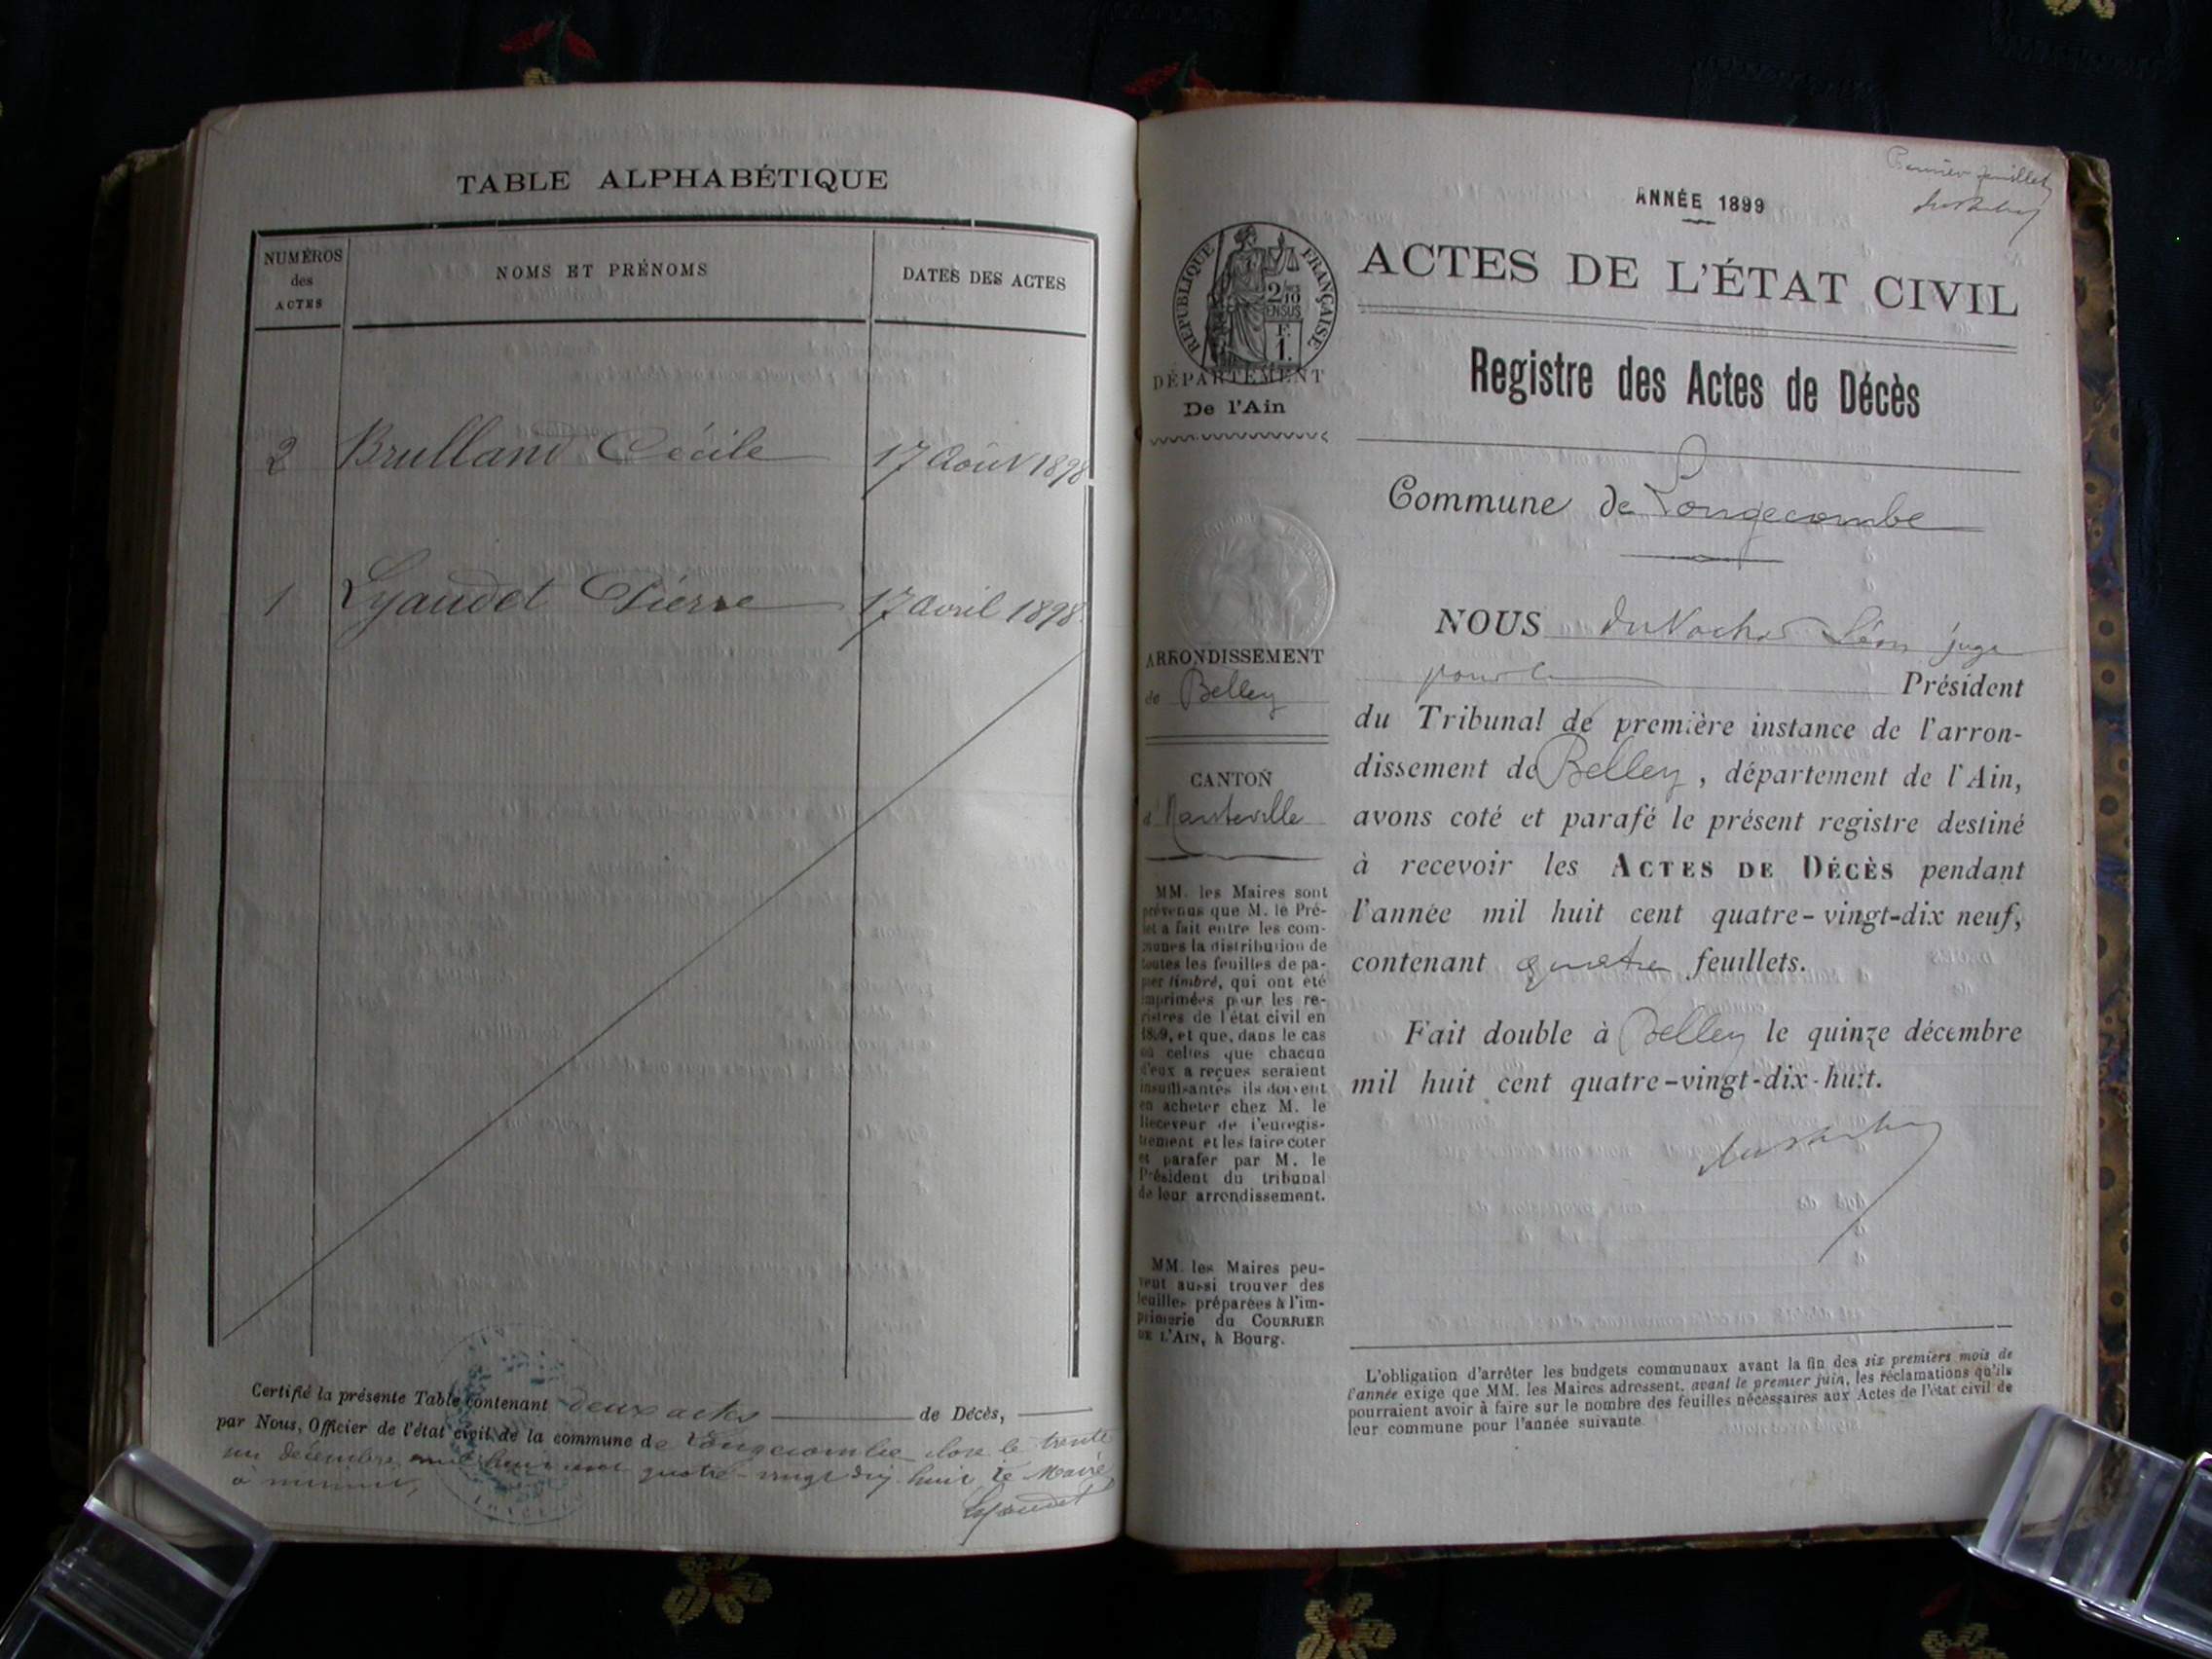 TABLE ALPHABÉTIQUE
NUMÉROS
des
ACTES
NOMS ET PRÉNOMS
DATES DES ACTES
2 Brulland Cécile 17 Août 1898
1 Lyaudet Pierre 17 avril 1898
Certifié la présente Table contenant deux actes de Décès,
par Nous, Officier de l'état civil de la commune de Longecombe close le trente
un décembre mil huit cent quatre-vingt dix huit le Maire
à minuit,
Lyaudet
Premier feuillet
ANNÉE 1899
RÉPUBLIQUE FRANÇAISE
2/10
EN SUS
F.
1.
ACTES DE L'ÉTAT CIVIL
DÉPARTEMENT
De l'Ain
Registre des Actes de Décès
Commune de Longecombe
ARRONDISSEMENT
de Belley
CANTON
d'Hauteville
MM. les Maires sont
prévenus que M. le Pré-
fet a fait entre les com-
munes la distribution de
toutes les feuilles de pa-
pier timbré, qui ont été
imprimées pour les re-
gistres de l'état civil en
1899, et que, dans le cas
où celles que chacun
d'eux a reçues seraient
insuffisantes ils doivent
en acheter chez M. le
Receveur de l'enregis-
trement et les faire coter
et parafer par M. le
Président du tribunal
de leur arrondissement.
MM. les Maires peu-
vent aussi trouver des
feuilles préparées à l'im-
primerie du COURRIER
DE L'AIN, à Bourg.
NOUS Léon juge
pour le Président
du Tribunal de première instance de l'arron-
dissement de Belley, département de l'Ain,
avons coté et parafé le présent registre destiné
à recevoir les ACTES DE DÉCÈS pendant
l'année mil huit cent quatre-vingt-dix neuf,
contenant quatre feuillets.
Fait double à Belley le quinze décembre
mil huit cent quatre-vingt-dix-huit.
L'obligation d'arrêter les budgets communaux avant la fin des six premiers mois de
l'année exige que MM. les Maires adressent, avant le premier juin, les réclamations qu'ils
pourraient avoir à faire sur le nombre des feuilles nécessaires aux Actes de l'état civil de
leur commune pour l'année suivante.